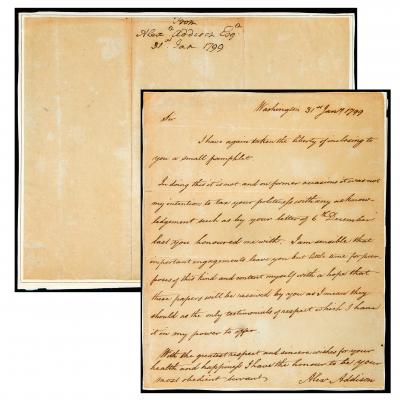 From
Alexr Addison Esqr
31st Jan 1799
Washington 31st Jany 1799
Sir
I have again taken the liberty of inclosing to
you a small pamphlet.
In doing this it is not and on former occasions it was not
my intention to tax your politeness with any acknow-
ledgement such as by your letter of 6th December
last you honoured me with. I am sensible that
important engagements leave you but little time for pur-
poses of this kind and content myself with a hope that
these papers will be received by you as I mean they
should as the only testimonials of respect which I have
it in my power to offer.
With the greatest respect and sincere wishes for your
health and happiness I have the honour to be your
most obedient servant
Alex Addison